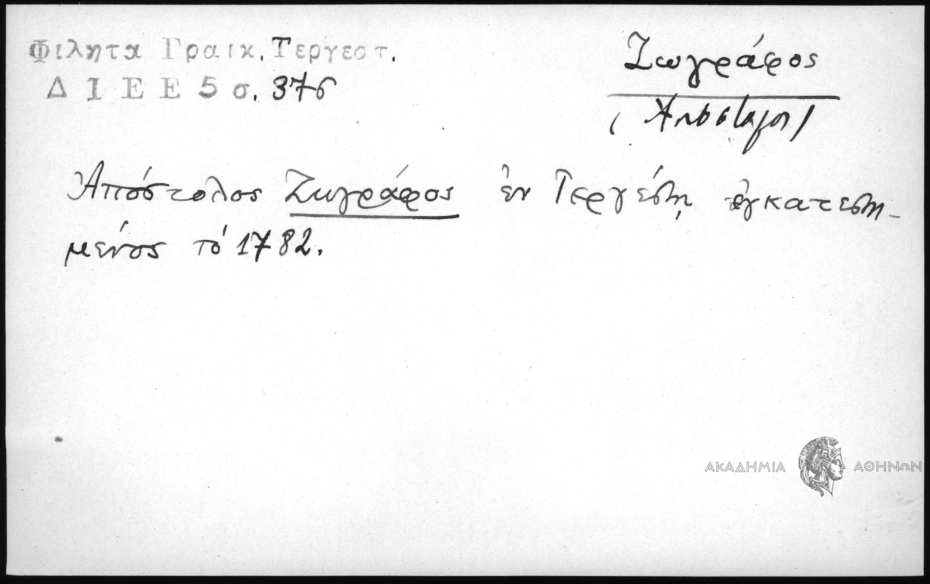 Φιλητα Γραικ. Τεργεστ.
Δ Ι Ε Ε 5 σ. 376
Ζωγράφος
Ἀπόστολος Ζωγράφος ἐν Τεργέστῃ ἐγκατεστη-
μένος τό 1782.
ΑΚΑΔΗΜΙΑ ΑΘΗΝΩΝ